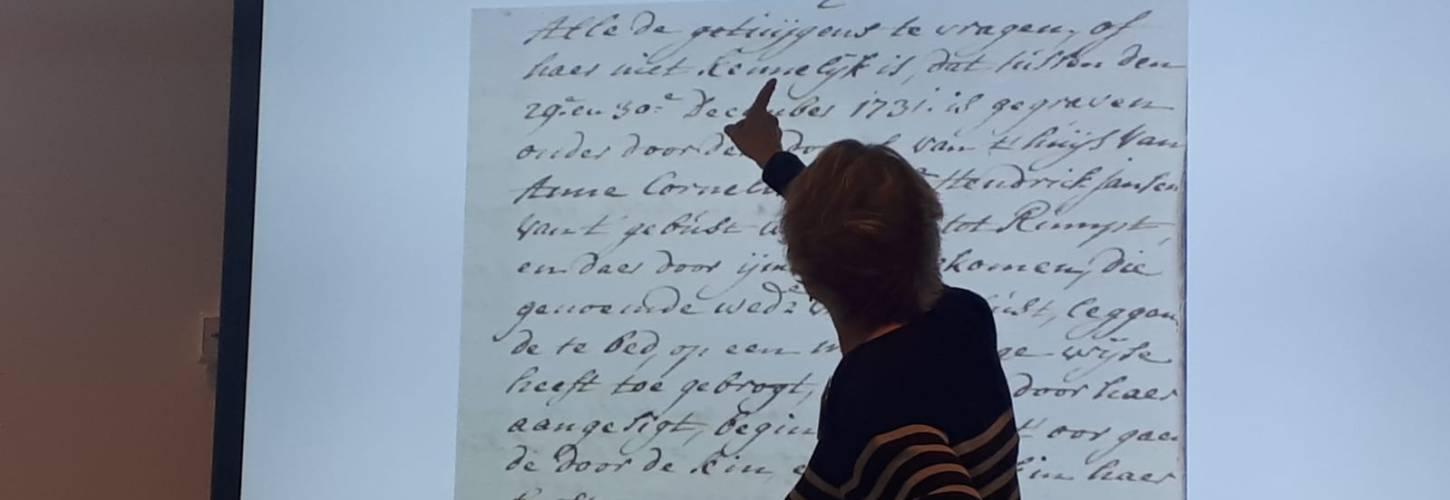 Alle de getuijgens te vragen, of
haer niet kennelijk is, dat tussen den
29e. en 30e December 1731. is gegraven
onder door de van 't huijs van
Anne Corneli Hendrick Jansen
van t' gebúst tot Rumpt,
en daer door komen, die
genoemde wede. leggen
de te bed, op een wijse
heeft toe gebrogt, door haer
aangesigt, begin 't oor gaen
de door de kin, haer